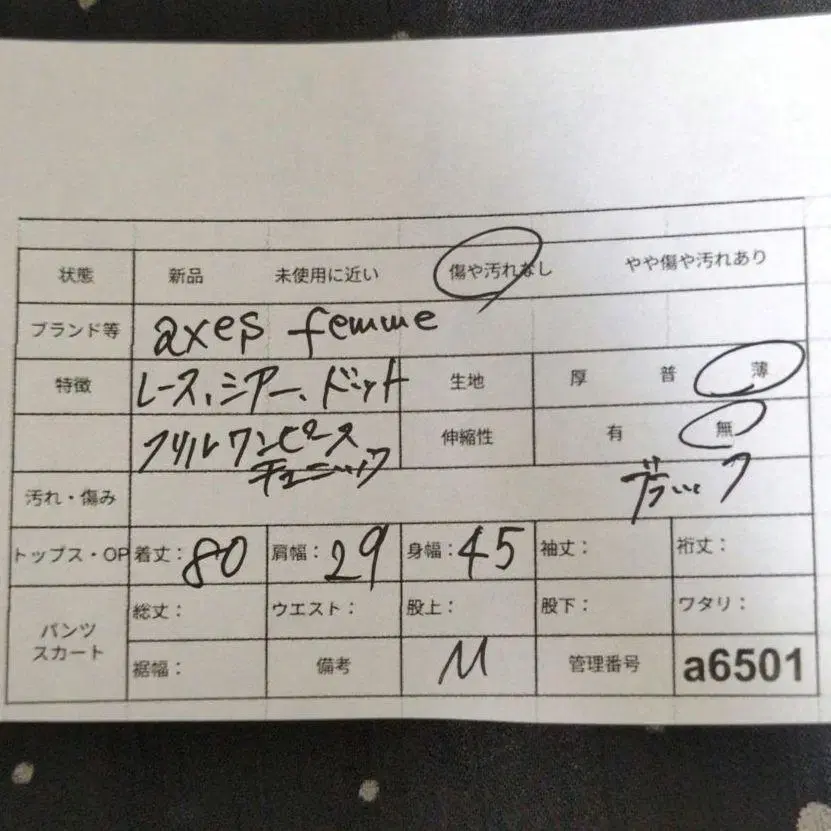 状態 新品 未使用に近い 傷や汚れなし やや傷や汚れあり
ブランド等 axes femme
特徴 レース、シアー、ドット 生地 厚 普 薄
フリルワンピース 伸縮性 有 無
チュニック
汚れ・傷み ブラック
トップス・OP 着丈：80 肩幅：29 身幅：45 袖丈： 裄丈：
パンツ スカート 総丈： ウエスト： 股上： 股下： ワタリ：
裾幅： 備考 M 管理番号 a6501